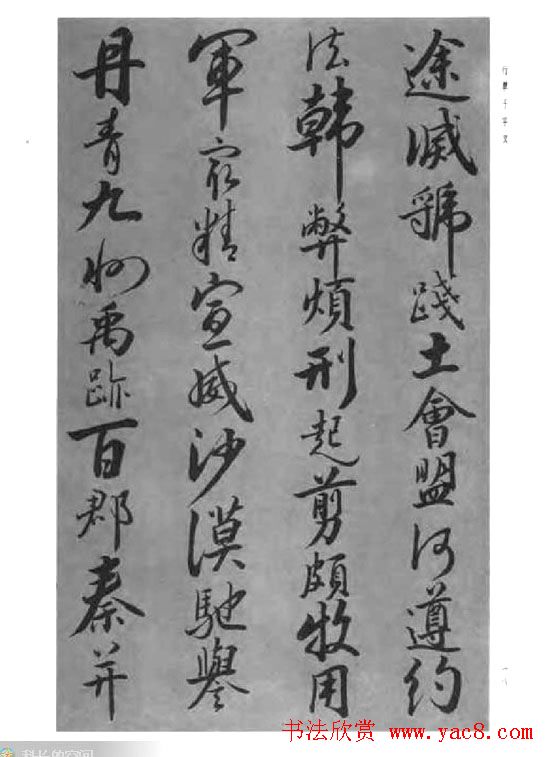 途滅虢踐土會盟何遵約
法韓弊煩刑起翦頗牧用
軍宼精宣威沙漠馳譽
丹青九州禹跡百郡秦并
行書千字文
一八
书法欣赏 www.yac8.com
科长的空间